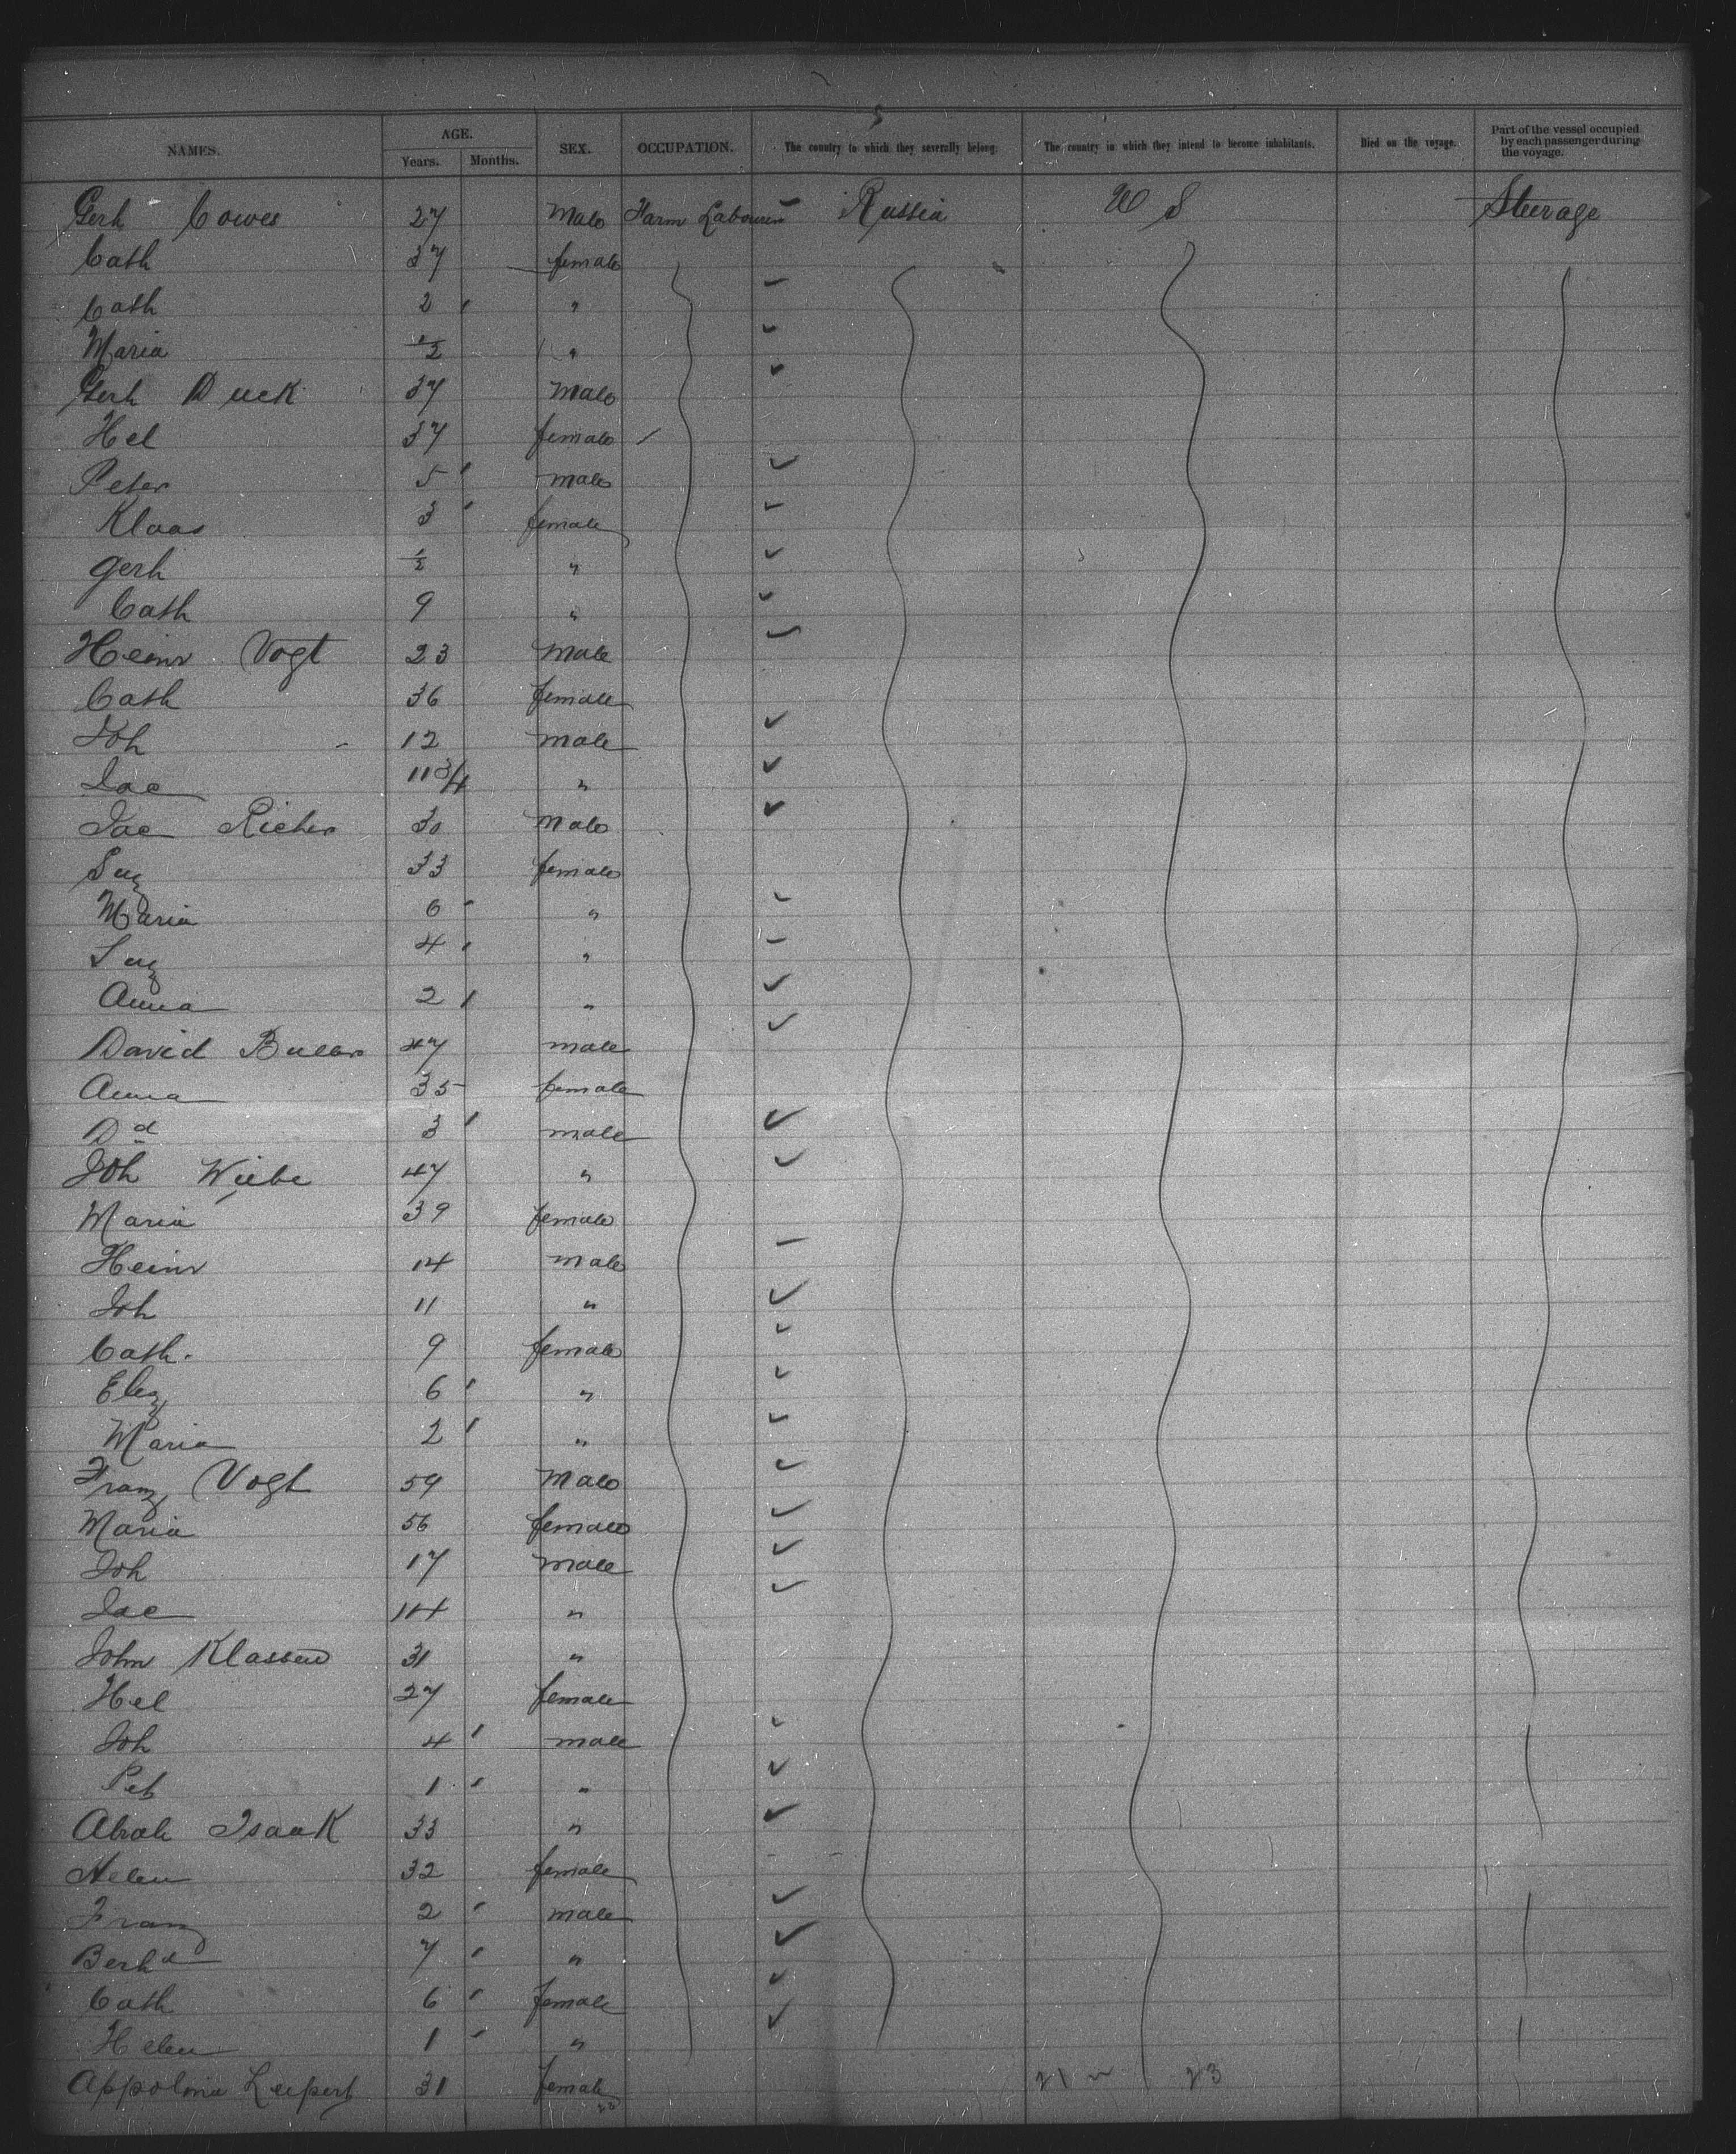 NAMES. AGE. Years. Months. SEX. OCCUPATION. The country to which they severally belong. The country in which they intend to become inhabitants. Died on the voyage. Part of the vessel occupied by each passenger during the voyage.
Gerh Cowes 27 Male Farm Labourer Russia U S Steerage
Cath 37 female
Cath 2 "
Maria 1/2 "
Gerh Duck 37 Male
Hel 37 female
Peter 5 male
Klaas 3 female
Gerh 1/2 "
Cath 9 "
Heinr Vogt 23 Male
Cath 36 female
Joh 12 male
Jac 11 3/4 "
Jac Richer 30 Male
Suz 33 female
Maria 6 "
Suz 4 "
Anna 2 "
David Buller 47 male
Anna 35 female
Dd 3 male
Joh Wiebe 47 "
Maria 39 female
Heinr 14 Male
Joh 11 "
Cath. 9 female
Eliz 6 "
Maria 2 "
Franz Vogt 59 Male
Maria 56 female
Joh 17 Male
Jac 14 "
John Klassen 31 "
Hel 27 female
Joh 4 male
Pet 1 "
Abrah Isaak 33 "
Helen 32 female
Franz 2 male
Berhd 7 "
Cath 6 female
Helen 1 "
Appolonia Leupert 31 female
21 23